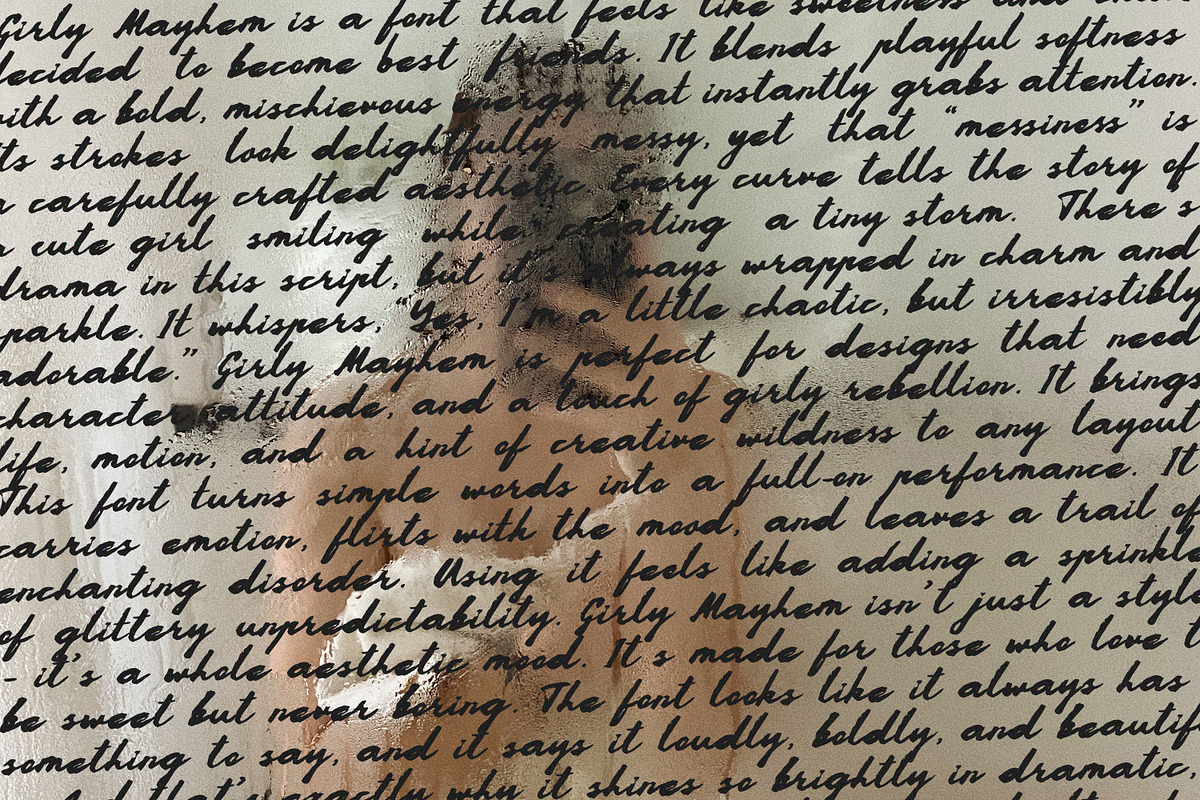 Girly Mayhem is a font that feels like sweetness and
decided to become best friends. It blends playful softness
with a bold, mischievous energy that instantly grabs attention.
Its strokes look delightfully messy, yet that “messiness” is
a carefully crafted aesthetic. Every curve tells the story of
a cute girl smiling while creating a tiny storm. There's
drama in this script, but it's always wrapped in charm and
sparkle. It whispers, “Yes, I'm a little chaotic, but irresistibly
adorable.” Girly Mayhem is perfect for designs that need
character, attitude, and a touch of girly rebellion. It brings
life, motion, and a hint of creative wildness to any layout
This font turns simple words into a full-on performance. It
carries emotion, flirts with the mood, and leaves a trail of
enchanting disorder. Using it feels like adding a sprinkle
of glittery unpredictability. Girly Mayhem isn't just a style
- it's a whole aesthetic mood. It's made for those who love t
be sweet but never boring. The font looks like it always has
something to say, and it says it loudly, boldly, and beautif
that's exactly why it shines so brightly in dramatic,